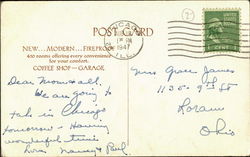 POST CARD
CHICAGO
1 PM
1947
ILL.
NEW... MODERN... FIREPROOF
400 rooms offering every convenience
for your comfort.
COFFEE SHOP — GARAGE
Dear Mom and all.
We are going to
take in Chicago
tomorrow - Having
wonderful time.
Love, Nancy & Paul.
Mrs Grace James
1135 - 9th St
Lorain
Ohio